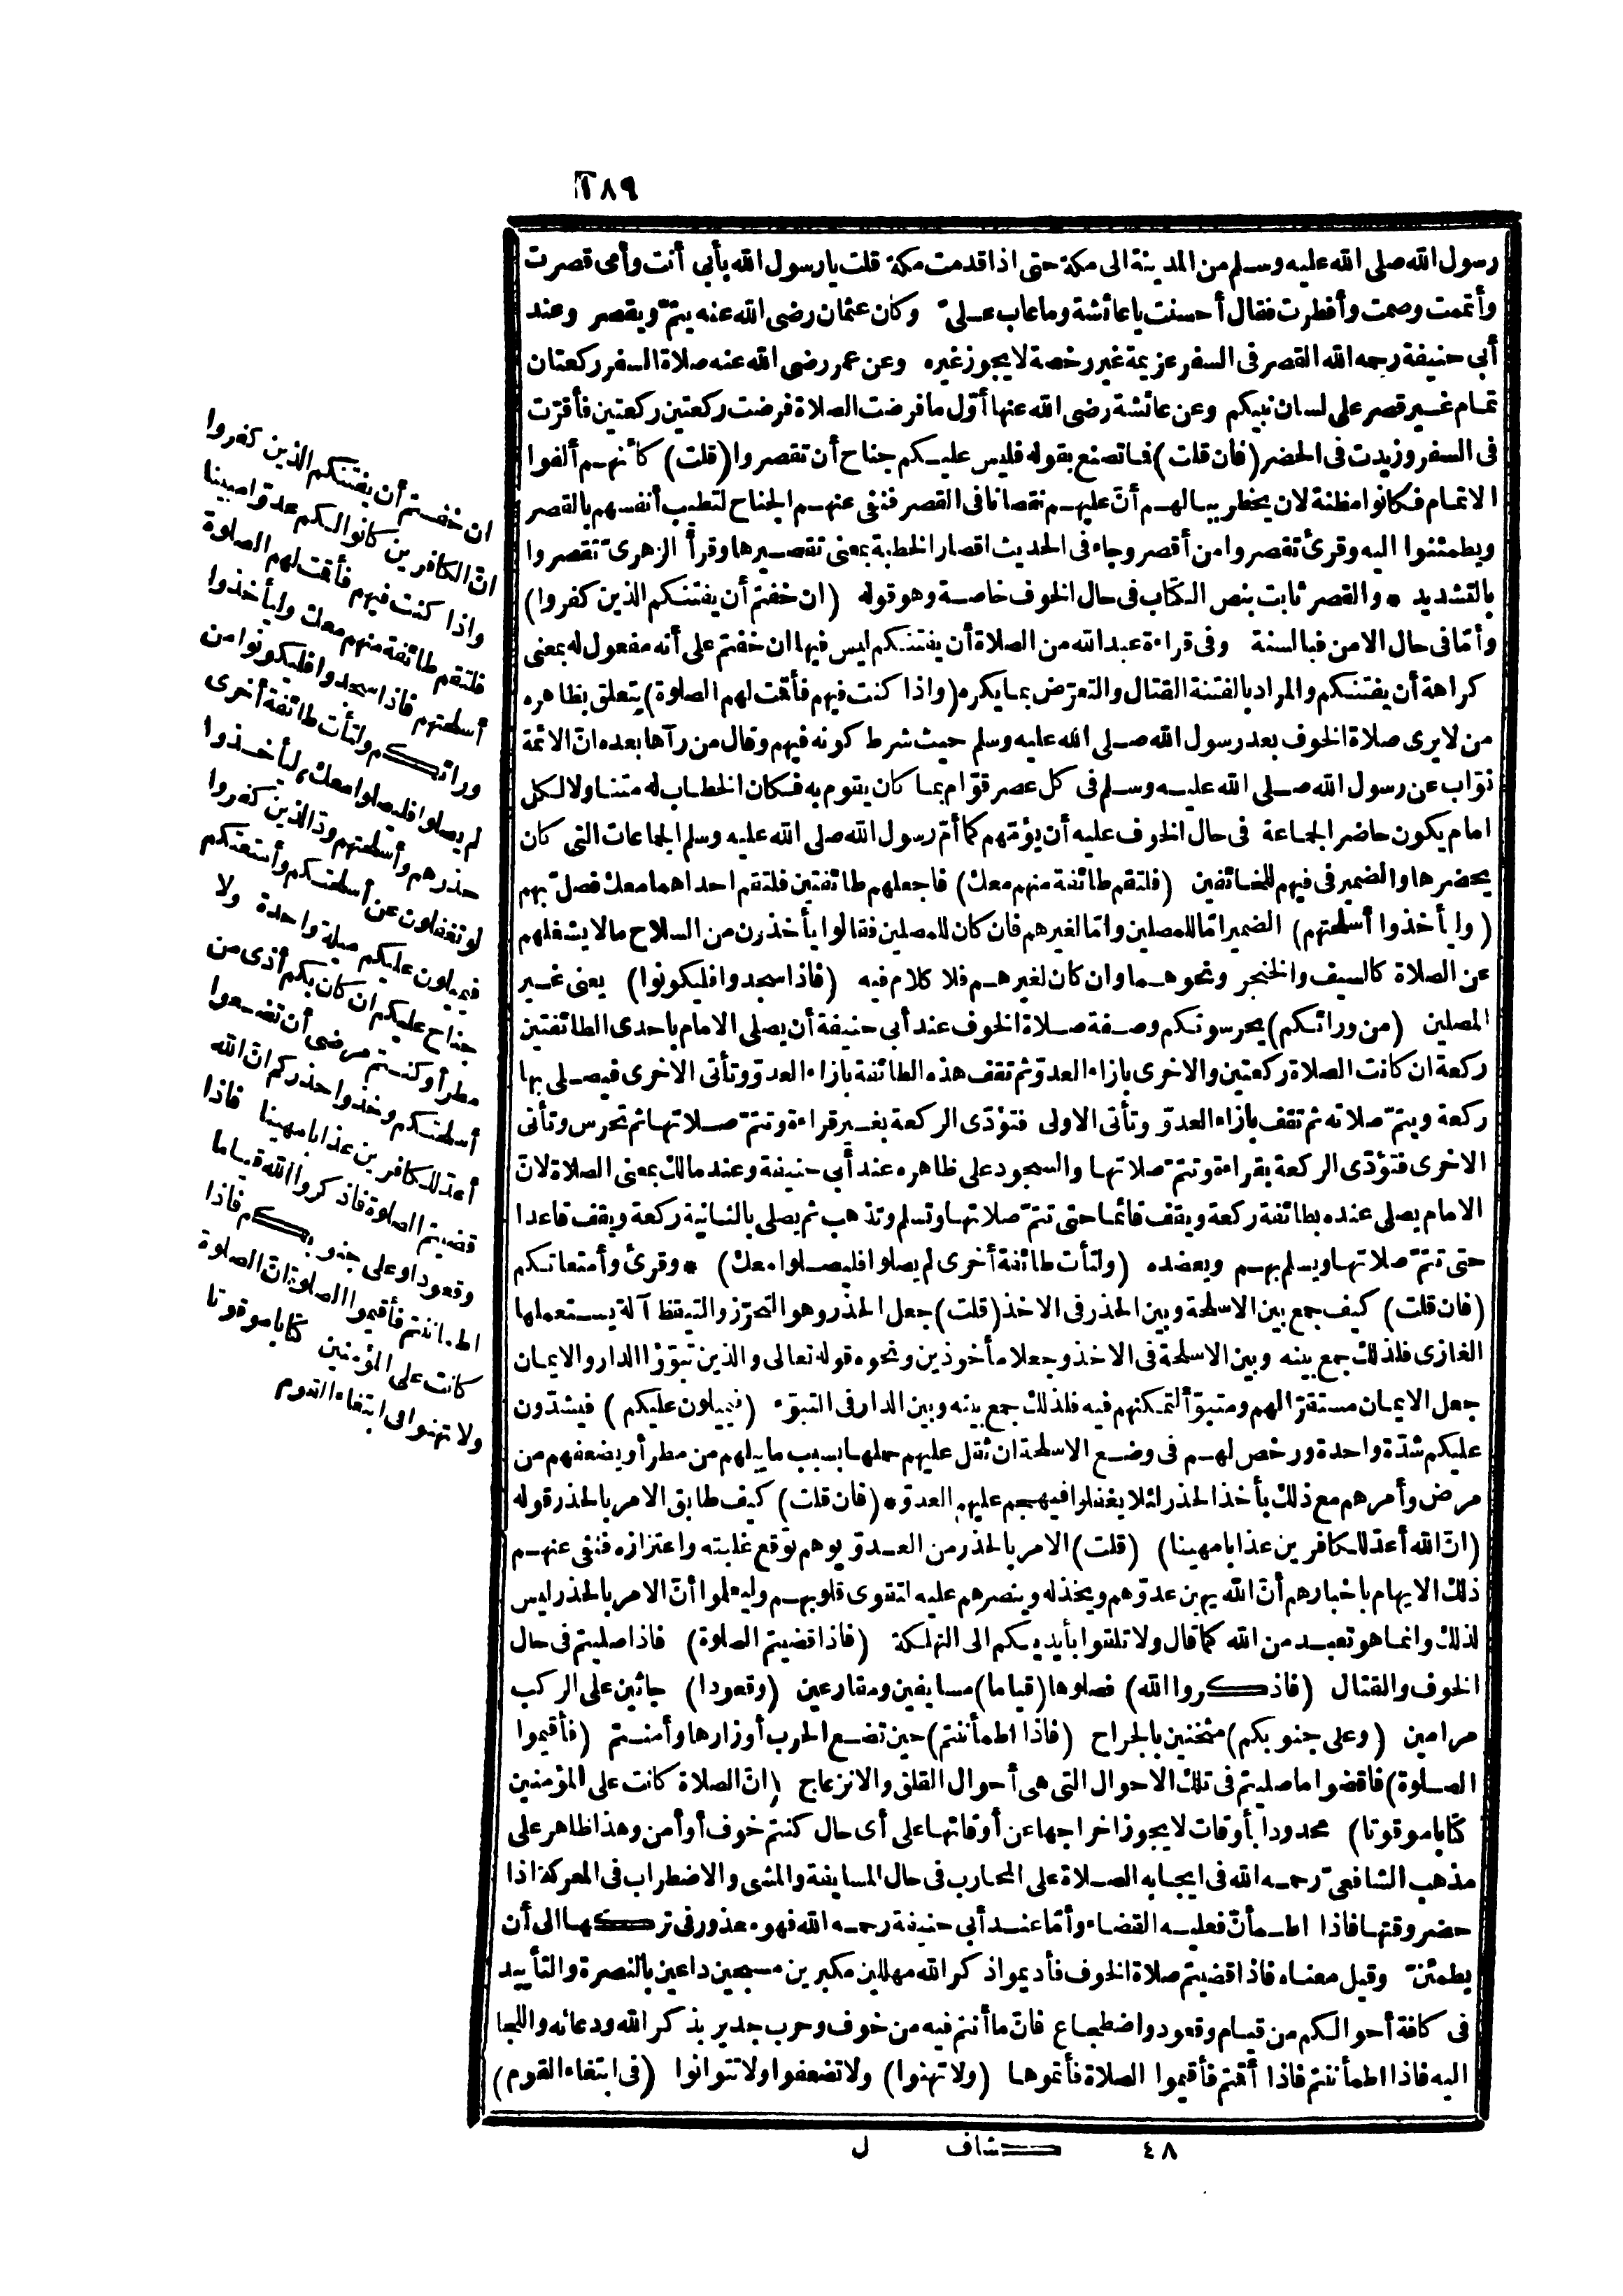 ١٨٩
رسول الله صلى الله عليه وسلم من المدينة الى مكة حتى اذا قدمت مكة قلت يا رسول الله بأبى أنت وأمى قصرت
وأتممت وصمت وأفطرت فقال أحسنت يا عائشة وما عاب علىّ وكان عثمان رضى الله عنه يتمّ ويقصر وعند
أبى حنيفة رحمه الله القصر فى السفر عزيمة غير رخصة لا يجوز غيره وعن عمر رضى الله عنه صلاة السفر ركعتان
تمام غير قصر على لسان نبيكم وعن عائشة رضى الله عنها أوّل ما فرضت الصلاة فرضت ركعتين ركعتين فأقرّت
فى السفر وزيدت فى الحضر (فان قلت) فما تصنع بقوله فليس عليكم جناح أن تقصروا (قلت) كأنهم ألفوا
الاتمام فكانوا مظنة لان يخطر ببالهم أنّ عليهم نقصانا فى القصر فنفى عنهم الجناح لتطيب أنفسهم بالقصر
ويطمئنوا اليه وقرئ تقصروا من أقصر وجاء فى الحديث اقصار الخطبة بمعنى تقصيرها وقرأ الزهرىّ تقصروا
بالتشديد * والقصر ثابت بنص الكتاب فى حال الخوف خاصة وهو قوله (ان خفتم أن يفتنكم الذين كفروا)
وأمّا فى حال الامن فبالسنة وفى قراءة عبد الله من الصلاة أن يفتنكم ليس فيها ان خفتم على أنه مفعول له بمعنى
كراهة أن يفتنكم والمراد بالفتنة القتال والتعرّض بما يكره (واذا كنت فيهم فأقمت لهم الصلوة) يتعلق بظاهره
من لا يرى صلاة الخوف بعد رسول الله صلى الله عليه وسلم حيث شرط كونه فيهم وقال من رآها بعده انّ الائمة
نوّاب عن رسول الله صلى الله عليه وسلم فى كل عصر قوّام بما كان يقوم به فكان الخطاب له متناولا لكل
امام يكون حاضر الجماعة فى حال الخوف عليه أن يؤمّهم كما أمّ رسول الله صلى الله عليه وسلم الجماعات التى كان
يحضرها والضمير فى فيهم للخائفين (فلتقم طائفة منهم معك) فاجعلهم طائفتين فلتقم احداهما معك فصلّ بهم
(وليأخذوا أسلحتهم) الضمير امّا للمصلين وامّا لغيرهم فان كان للمصلين فقالوا يأخذون من السلاح ما لا يشغلهم
عن الصلاة كالسيف والخنجر ونحوهما وان كان لغيرهم فلا كلام فيه (فاذا سجدوا فليكونوا) يعنى غير
المصلين (من ورائكم) يحرسونكم وصفة صلاة الخوف عند أبى حنيفة أن يصلى الامام باحدى الطائفتين
ركعة ان كانت الصلاة ركعتين والاخرى بازاء العدوّ ثم تقف هذه الطائفة بازاء العدوّ وتأتى الاخرى فيصلى بها
ركعة ويتمّ صلاته ثم تقف بازاء العدوّ وتأتى الاولى فتؤدّى الركعة بغير قراءة وتتمّ صلاتها ثم تحرس وتأتى
الاخرى فتؤدّى الركعة بقراءة وتتمّ صلاتها والسجود على ظاهره عند أبى حنيفة وعند مالك بمعنى الصلاة لانّ
الامام يصلى عنده بطائفة ركعة ويقف قائما حتى تتمّ صلاتها وتسلم وتذهب ثم يصلى بالثانية ركعة ويقف قاعدا
حتى تتمّ صلاتها ويسلم بهم ويعضده (ولتأت طائفة أخرى لم يصلوا فليصلوا معك) * وقرئ وأمتعاتكم
(فان قلت) كيف جمع بين الاسلحة وبين الحذر فى الاخذ (قلت) جعل الحذر وهو التحرّز والتيقظ آلة يستعملها
الغازى فلذلك جمع بينه وبين الاسلحة فى الاخذ وجعلا مأخوذين ونحوه قوله تعالى والذين تبوّؤا الدار والايمان
جعل الايمان مستقرّا لهم ومتبوّأ لتمكنهم فيه فلذلك جمع بينه وبين الدار فى التبوّء (فيميلون عليكم) فيشدّون
عليكم شدّة واحدة ورخص لهم فى وضع الاسلحة ان ثقل عليهم حملها بسبب ما يبلهم من مطر أو يضعفهم من
مرض وأمرهم مع ذلك بأخذ الحذر لئلا يغفلوا فيهجم عليهم العدوّ * (فان قلت) كيف طابق الامر بالحذر قوله
(انّ الله أعدّ للكافرين عذابا مهينا) (قلت) الامر بالحذر من العدوّ يوهم توقع غلبته واعتزازه فنفى عنهم
ذلك الايهام باخبارهم أنّ الله يهين عدوّهم ويخذله وينصرهم عليه لتقوى قلوبهم وليعلموا أنّ الامر بالحذر ليس
لذلك وانما هو تعبد من الله كما قال ولا تلقوا بأيديكم الى التهلكة (فاذا قضيتم الصلوة) فاذا صليتم فى حال
الخوف والقتال (فاذكروا الله) فصلوها (قياما) مسايفين ومقارعين (وقعودا) جاثين على الركب
مرامين (وعلى جنوبكم) مثخنين بالجراح (فاذا اطمأننتم) حين تضع الحرب أوزارها وأمنتم (فأقيموا
الصلوة) فاقضوا ما صليتم فى تلك الاحوال التى هى أحوال القلق والانزعاج (انّ الصلاة كانت على المؤمنين
كتابا موقوتا) محدودا بأوقات لا يجوز اخراجها عن أوقاتها على أى حال كنتم خوف أو أمن وهذا ظاهر على
مذهب الشافعىّ رحمه الله فى ايجابه الصلاة على المحارب فى حال المسايفة والمشى والاضطراب فى المعركة اذا
حضر وقتها فاذا اطمأنّ فعليه القضاء وأمّا عند أبى حنيفة رحمه الله فهو معذور فى تركها الى أن
يطمئنّ وقيل معناه فاذا قضيتم صلاة الخوف فأديموا ذكر الله مهللين مكبرين مسبحين داعين بالنصرة والتأييد
فى كافة أحوالكم من قيام وقعود واضطجاع فانّ ما أنتم فيه من خوف وحرب جدير بذكر الله ودعائه واللجا
اليه فاذا اطمأننتم فاذا أقمتم فأقيموا الصلاة فأتموها (ولا تهنوا) ولا تضعفوا ولا تتوانوا (فى ابتغاء القوم)
ان خفتم أن يفتنكم الذين كفروا
انّ الكافرين كانوا لكم عدوّا مبينا
واذا كنت فيهم فأقمت لهم الصلوة
فلتقم طائفة منهم معك وليأخذوا
أسلحتهم فاذا سجدوا فليكونوا من
ورائكم ولتأت طائفة أخرى
لم يصلوا فليصلوا معك وليأخذوا
حذرهم وأسلحتهم ودّ الذين كفروا
لو تغفلون عن أسلحتكم وأمتعتكم
فيميلون عليكم ميلة واحدة ولا
جناح عليكم ان كان بكم أذى من
مطر أو كنتم مرضى أن تضعوا
أسلحتكم وخذوا حذركم انّ الله
أعدّ للكافرين عذابا مهينا فاذا
قضيتم الصلوة فاذكروا الله قياما
وقعودا وعلى جنوبكم فاذا
اطمأننتم فأقيموا الصلوة انّ الصلوة
كانت على المؤمنين كتابا موقوتا
ولا تهنوا فى ابتغاء القوم
٤٨ كشاف ل